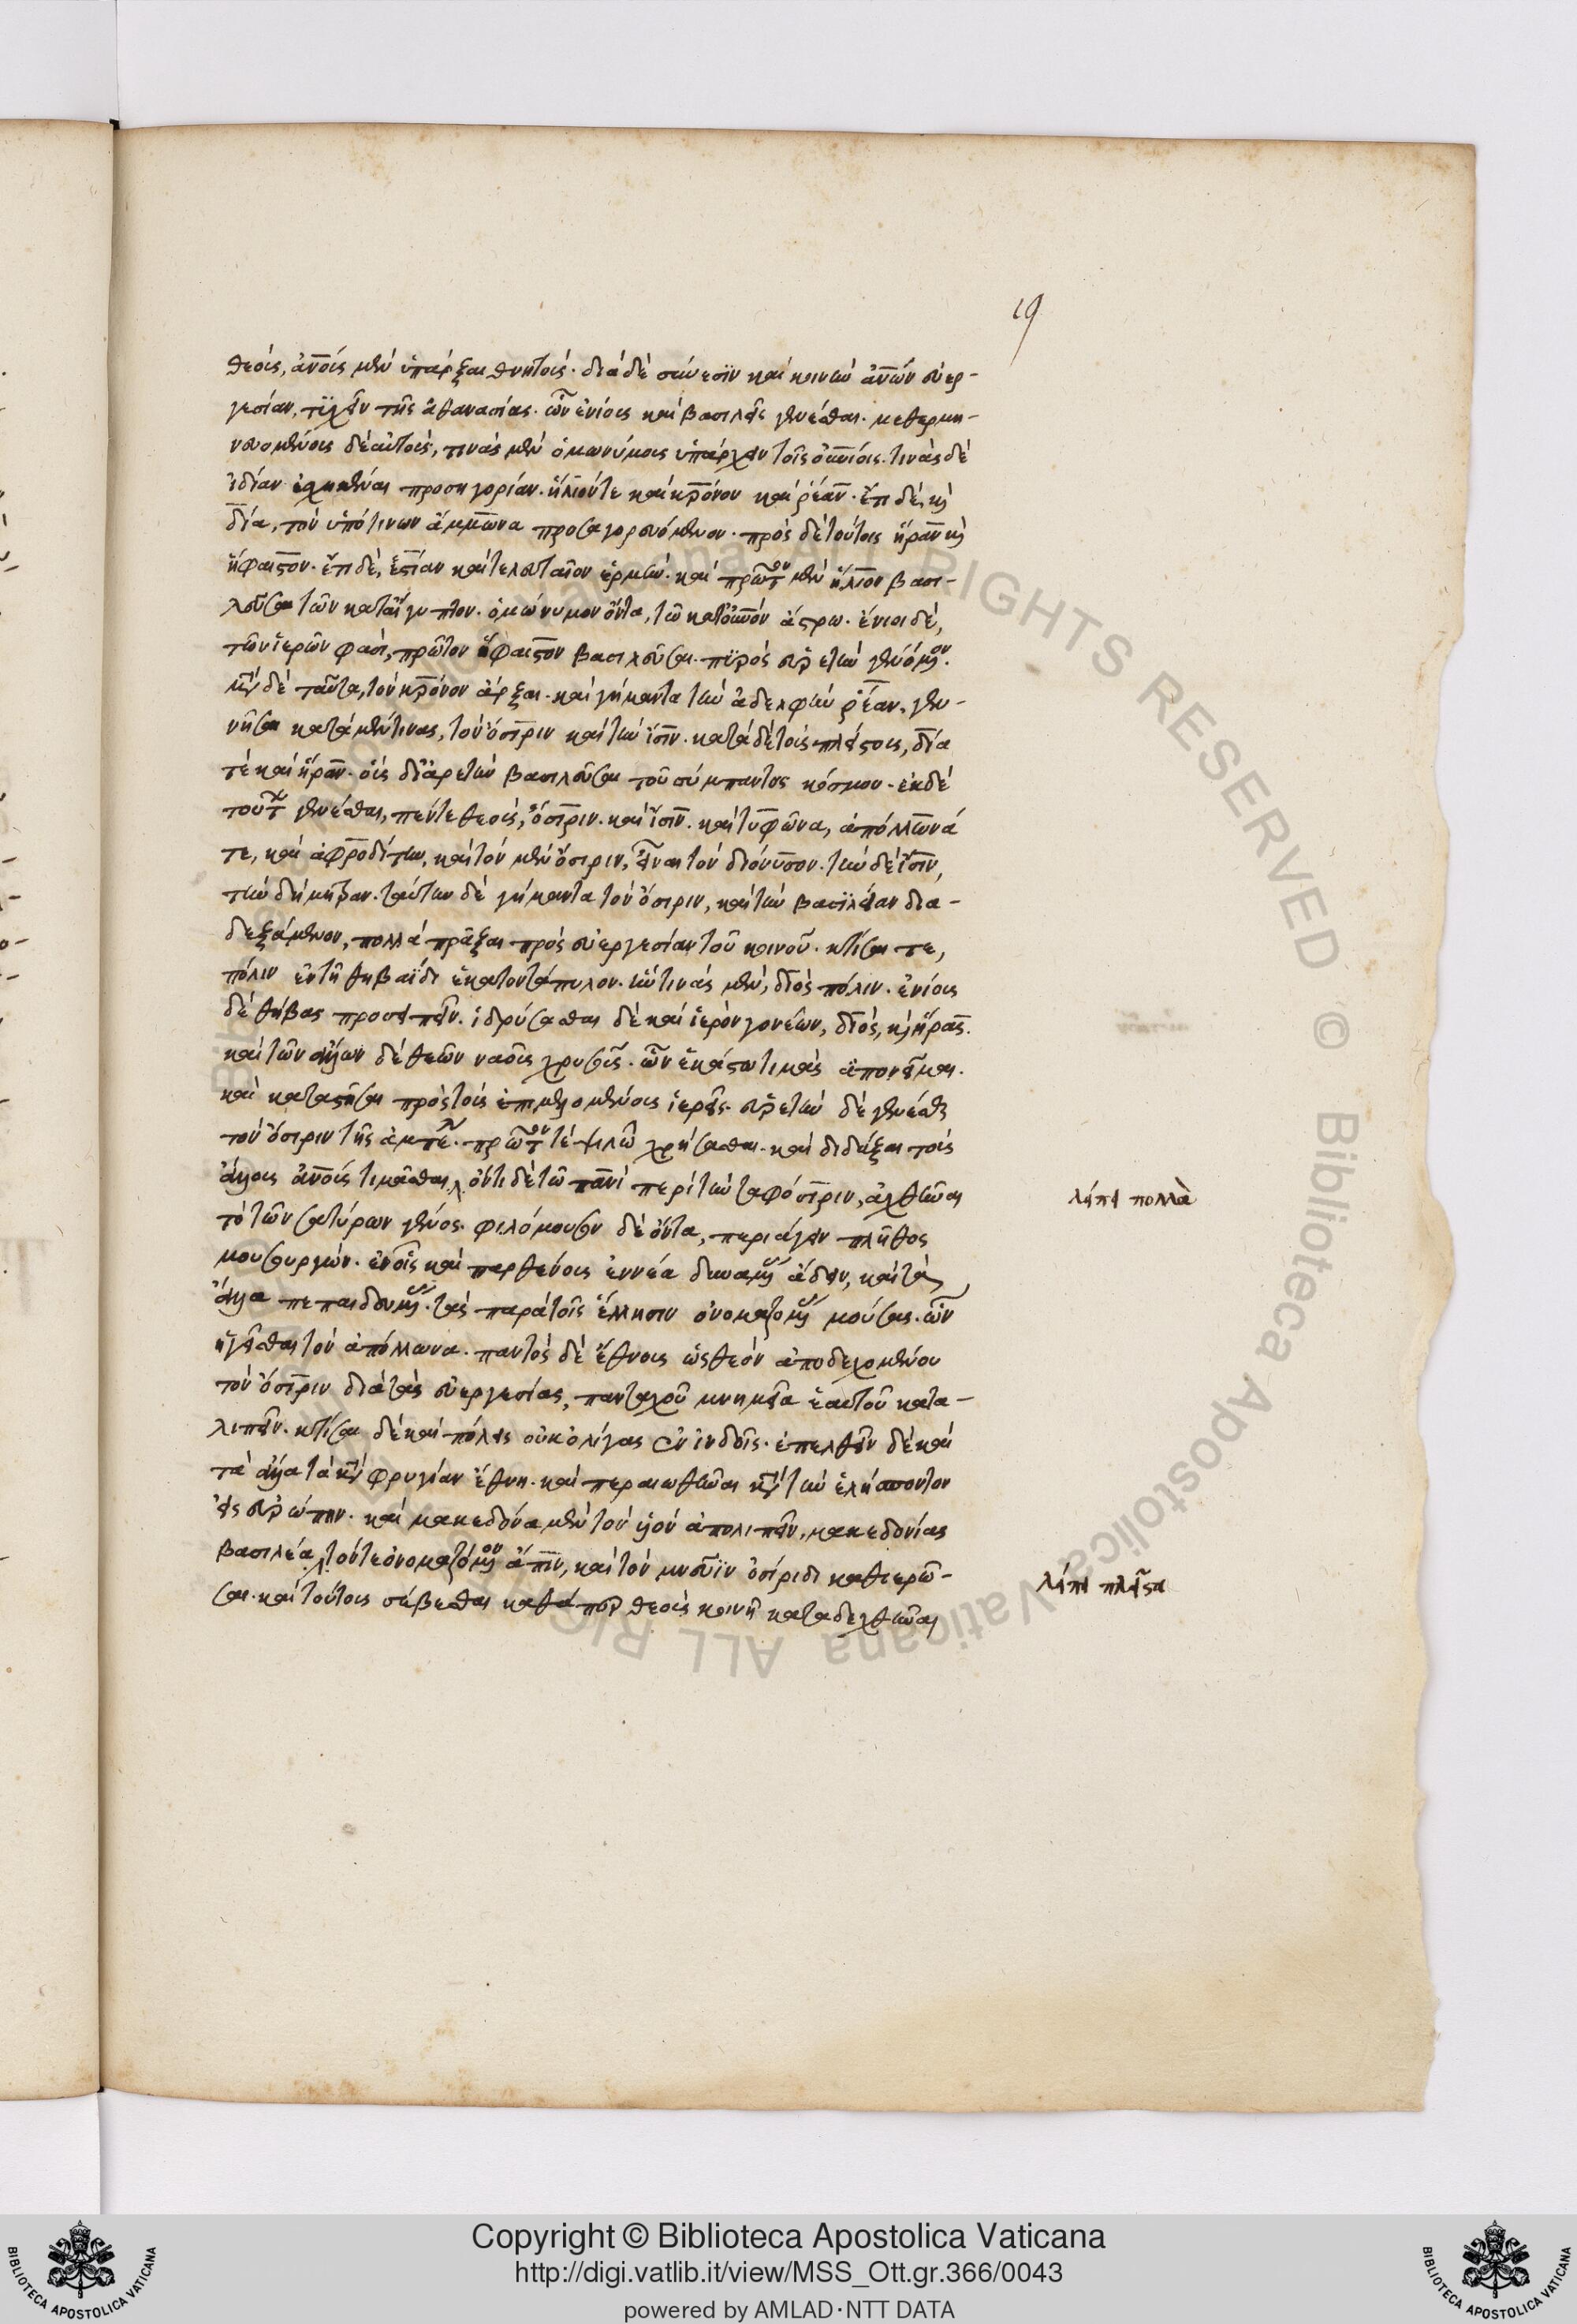 19
θεοὺς, ἀνοὺς μὲν ὑπάρξαι θνητούς· διὰ δὲ σύνεσϊν καὶ κοινὴν ἀνῶν εὐερ-
γεσίαν, τϋχεῖν τῆς ἀθανασίας. ὧν ἐνίους καὶ βασιλεῖς γενέσθαι. μεθερμη-
νευομένους δὲ αὐτοὺς, τινὰς μὲν ὁμωνύμους ὑπάρχειν τοῖς οὐνίοις. τινὰς δὲ
ἰδίαν ἐσχηκέναι προσηγορίαν. ἥλιόν τε καὶ κρόνον καὶ ῥέαν. ἔτι δὲ, καὶ
δία, τὸν ὑπό τινων ἄμμωνα προσαγορευόμενον. πρὸς δὲ τούτοις ἥραν καὶ
ἥφαιστον. ἔτι δὲ, ἑστίαν καὶ τελευταῖον ἑρμῆν. καὶ πρῶτον μὲν ἥλιον βασι-
λεῦσαι τῶν κατ' αἴγυπτον. ὁμώνυμον ὄντα, τῶ κατ' οὐνὸν ἄστρω. ἔνιοι δὲ,
τῶν ἱερῶν φασὶ, πρῶτον ἥφαιστον βασιλεῦσαι. πϋρὸς εὑρετὴν γενόμενον.
μετὰ δὲ ταῦτα, τὸν κρόνον ἄρξαι. καὶ γήμαντα τὴν ἀδελφὴν ῥέαν, γεν-
νῆσαι κατὰ μέν τινας, τὸν ὄσιριν καὶ τὴν ἴσιν. κατὰ δὲ τοὺς πλείστους, δία
τὲ καὶ ἥραν. οὓς δι' ἀρετὴν βασιλεῦσαι τοῦ σύμπαντος κόσμου. ἐκ δὲ
τούτων γενέσθαι, πέντε θεοὺς, ὄσιριν. καὶ ἴσιν. καὶ τυφῶνα, ἀπόλλωνά
τε, καὶ ἀφροδίτην, καὶ τὸν μὲν ὄσιριν, εἶναι τὸν διόνυσον. τὴν δὲ ἴσιν,
τὴν δήμητραν. ταύτην δὲ γήμαντα τὸν ὄσιριν, καὶ τὴν βασϊλείαν δια-
δεξάμενον, πολλὰ πρᾶξαι πρὸς εὐεργεσίαν τοῦ κοινοῦ. κτίσαι τε,
πόλιν ἐν τῇ θηβαΐδι ἑκατοντάπυλον. ἣν τινὰς μὲν, διὸς πόλιν. ἐνίους
δὲ θήβας προσειπεῖν. ἱδρύσασθαι δὲ καὶ ἱερὸν γονέων, διὸς, καὶ ἥρας.
καὶ τῶν ἄλλων δὲ θεῶν ναοὺς χρυσοῦς. ὧν ἑκάστω τιμὰς ἀπονεῖμαι.
καὶ καταστῆσαι πρὸς τοὺς ἐπιμελομένους ἱερεῖς. εὑρετὴν δὲ γενέσθαι
τὸν ὄσιριν τῆς ἀμπέλου. πρῶτόν τὲ ψιλῶ χρήσασθαι. καὶ διδάξαι τοὺς
ἄλλους ἀνοὺς τιμᾶσθαι, ὄντι δὲ τῶ πανὶ περὶ τὴν ταφόσιριν, ἀχθῆναι
τὸ τῶν σατύρων γένος. φιλόμουσον δὲ ὄντα, περιάγειν πλῆθος
μουσουργῶν. ἐν οἷς καὶ παρθένους ἐννέα δυναμένας ἄδειν, καὶ τὰ
ἄλλα πεπαιδευμένας. τὰς παρὰ τοῖς ἕλλησιν ὀνομαζομένας μούσας. ὧν
ἡγεῖσθαι τὸν ἀπόλλωνα. παντὸς δὲ ἔθνους ὡς θεὸν ἀποδεχομένου
τὸν ὄσιριν διὰ τὰς εὐεργεσίας, πανταχοῦ μνημεῖα ἑαυτοῦ κατα-
λιπεῖν. κτίσαι δὲ καὶ πόλεις οὐκ ὀλίγας ἐν ἰνδοῖς. ἐπελθεῖν δὲ καὶ
τὰ ἄλλα τὰ κατὰ φρυγίαν ἔθνη. καὶ περαιωθῆναι κατὰ τὸν ἑλλήσποντον
εἰς εὐρώπην. καὶ μακεδόνα μὲν τὸν υἱὸν ἀπολιπεῖν, μακεδονίας
βασιλέα, τόν τε ὀνομαζόμενον ἄπιν, καὶ τὸν μνεῦϊν ὀσίριδι καθιερῶ-
σαι. καὶ τούτους σέβεσθαι καθάπερ θεοὺς κοινῇ καταδειχθῆναι
λείπει πολλὰ
λείπει πλεῖστα
Copyright © Biblioteca Apostolica Vaticana
http://digi.vatlib.it/view/MSS_Ott.gr.366/0043
powered by AMLAD·NTT DATA